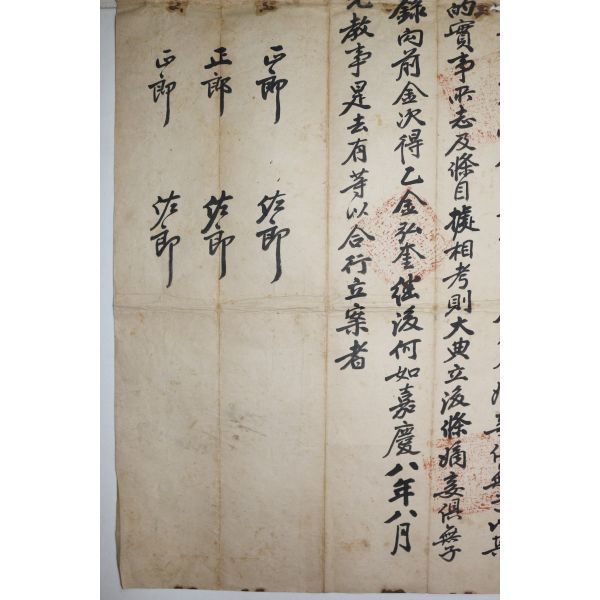 的實事所志及條目據相考則大典立後條嫡妾俱無子
錄向前金次得乙金弘奎継後何如嘉慶八年八月
教事是去有等以合行立案者
正郎 佐郎
正郎 佐郎
正郎 佐郎